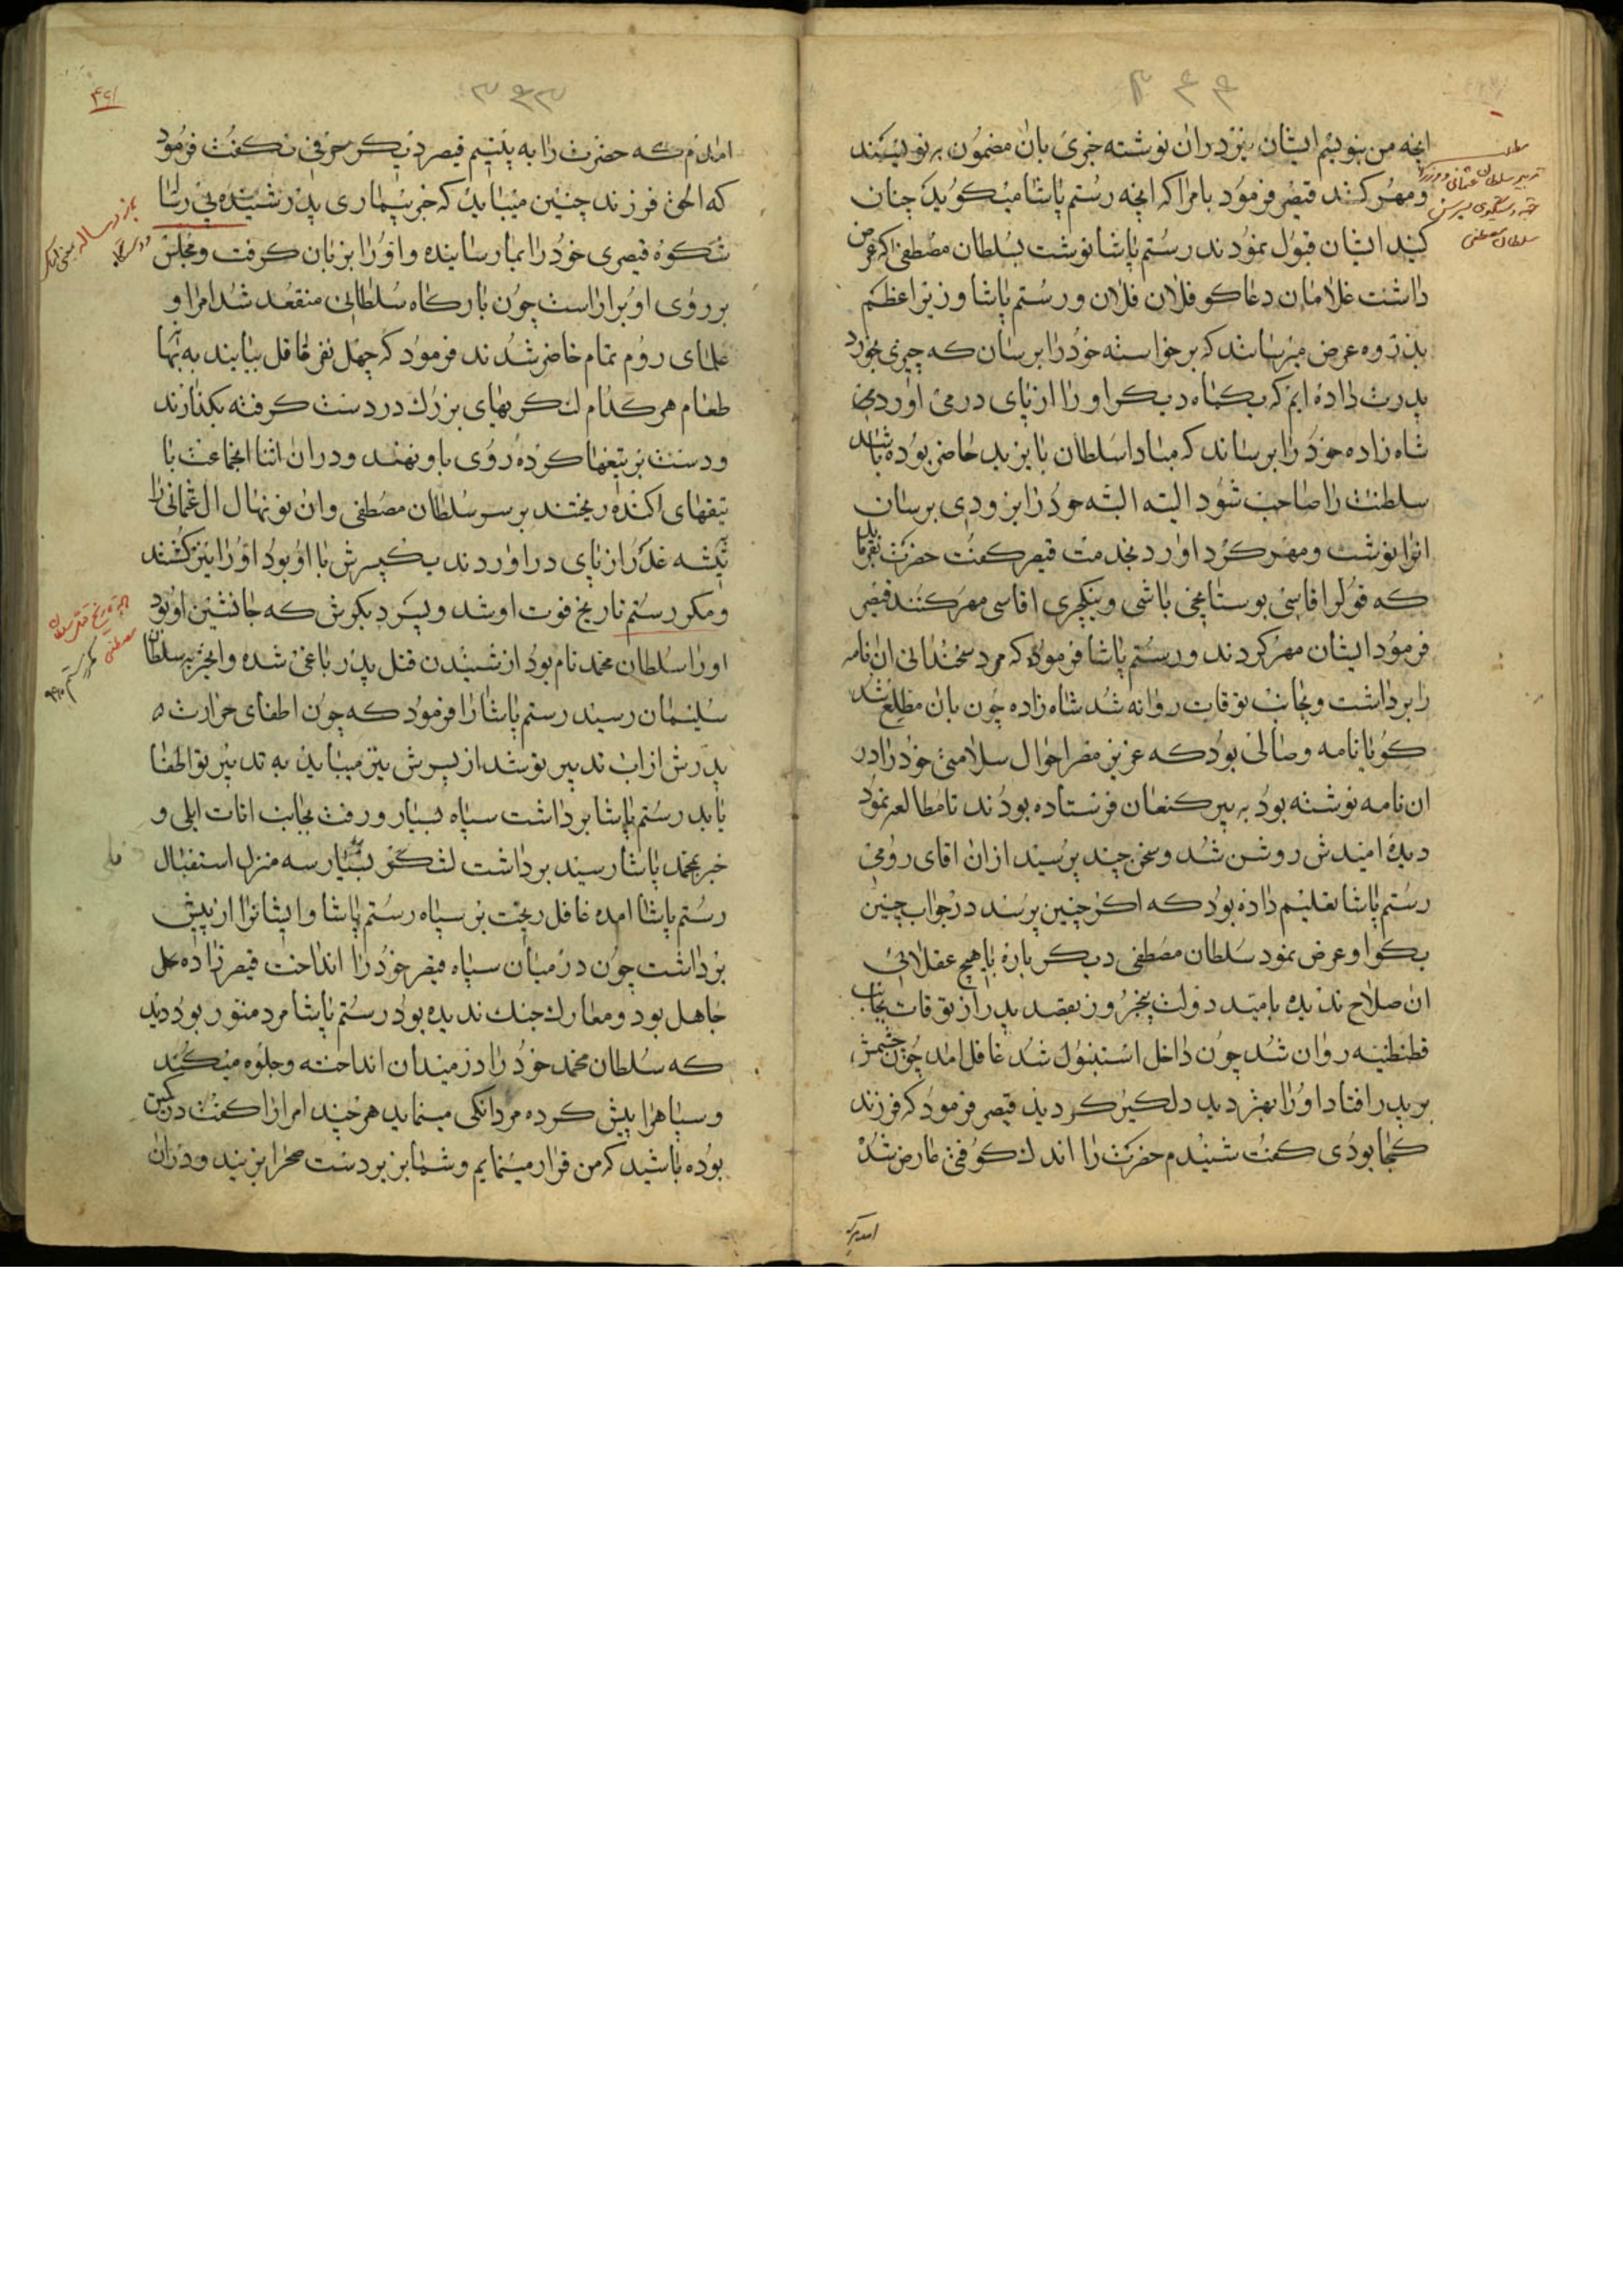 انچه من بنویسم ایشان نیز در ان نوشته خبری بان مضمون بنویسند
و مهر کنند قیصر فرمود بامرا که انچه رستم پاشا میکوید چنان
کنید ایشان قبول نمودند رستم پاشا نوشت بسلطان مصطفی که عرض
داشت غلامان دعاکو فلان فلان و رستم پاشا وزیر اعظم
بذروه عرض میرسانند که برخواسته خود را برسان که چیزی بخورد
پدرت داده ایم که یکماه دیکر او را از پای در می اورد می
شاه زاده خود را برساند که مبادا سلطان بایزید حاضر بوده باشد
سلطنت را صاحب شود البته البته خود را بزودی برسان
انرا نوشت و مهر کرد اورد بخدمت قیصر کفت حضرت بفرماید
که قولر اقاسی بوستانچی باشی و ینکچری اقاسی مهر کنند قیصر
فرمود ایشان مهر کردند و رستم پاشا فرمود که مرد سخندانی ان نامه
را برداشت و بجانب توقات روانه شد شاه زاده چون بان مطلع شد
کویا نامه وصالی بود که عزیز مصر احوال سلامتی خود را در
ان نامه نوشته بود به پیر کنعان فرستاده بودند تا مطالعه نمود
دیده امیدش روشن شد و سخن چند پرسید از ان اقای رومی
رستم پاشا تعلیم داده بود که اکر چنین پرسند در جواب چنین
بکو او عرض نمود سلطان مصطفی دیکر باره با هیچ عقلائی
ان صلاح ندیده بامید دولت پنجروز بقصد پدر از توقات بجانب
قطنطنیه روان شد چون داخل استنبول شد غافل امد چون چشمش
بر پدر افتاد او را بهتر دید دلکیر کردید قیصر فرمود که فرزند
کجا بودی کفت شنیدم حضرت را اندک کوفتی عارض شد
امدم که
امدم که حضرت را به بینیم قیصر دیکر حرفی نکفت فرمود
که الحق فرزند چنین میباید که خبر بیماری پدر شنیده بی رسا
شکوه قیصری خود را بما رسانیده و او را بزبان کرفت و مجلس
بر روی او براراست چون بارکاه سلطانی منقعد شد امرا و
علمای روم تمام حاضر شدند فرمود که چهل نفر قاقل بیایند به تنها
طعام هر کدام لنکریهای بزرک در دست کرفته بکذارند
و دست بر تیغها کرده روی باو نهند و در ان اثنا انجماعت با
تیغهای اکنده ریختند بر سر سلطان مصطفی و ان نونهال ال عثمانی را
تیشه غدر از پای در اوردند یک پسرش با او بود او را نیز کشتند
و مکر رستم تاریخ فوت او شد و پسر دیکرش که جانشین او بود
او را سلطان محمد نام بود از شنیدن قتل پدر باغی شده و انخبر به سلطان
سلیمان رسید رستم پاشا را فرمود که چون اطفای حرارت
پدرش از اب تدبیر تو شد از پسرش نیز میباید به تدبیر تو اطفا
یابد رستم پاشا برداشت سپاه بسیار و رفت بجانب انات ایلی و
خبر بمحمد پاشا رسید برداشت لشکر بسیار سه منزل استقبال
رستم پاشا امده غافل ریخت بر سپاه رستم پاشا و ایشانرا از پیش
برداشت چون در میان سپاه قیصر خود را انداخت قیصر زاده
جاهل بود و معارک جنک ندیده بود رستم پاشا مرد منتور بود دید
که سلطان محمد خود را در میدان انداخته و جلوه میکند
و سپاهرا پیش کرده مردانکی مینماید هر چند امرا را کفت در کمین
بوده باشید که من فرار مینمایم و شما بزبردست صحرا بزنید و در ان